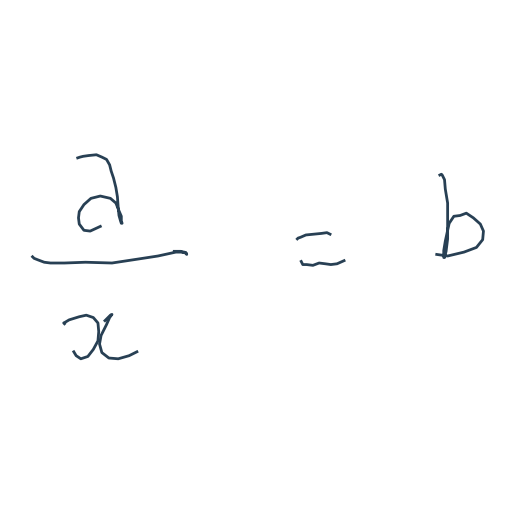 a
x
= b